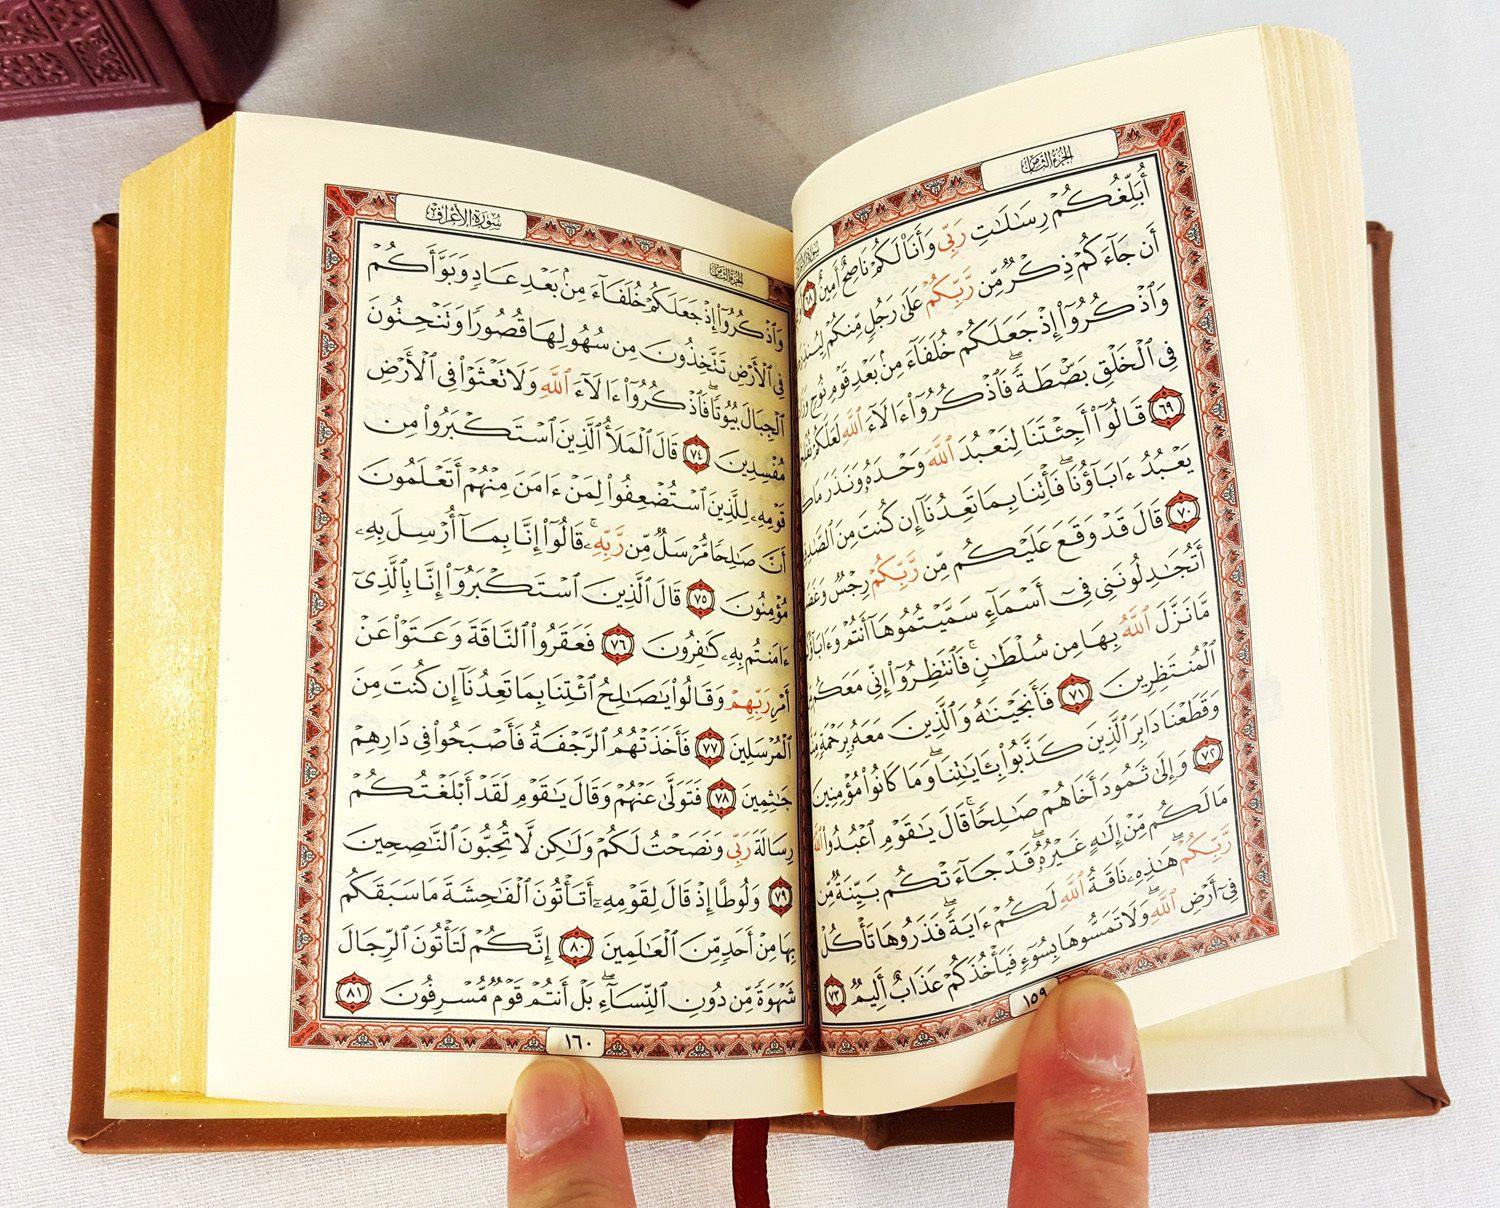 الجزء الثامن
أُبَلِّغُكُمْ رِسَٰلَٰتِ رَبِّي وَأَنَا۠ لَكُمْ نَاصِحٌ أَمِينٌ ٦٨
أَن جَآءَكُمْ ذِكْرٌ مِّن رَّبِّكُمْ عَلَىٰ رَجُلٍ مِّنكُمْ
وَٱذْكُرُوٓا۟ إِذْ جَعَلَكُمْ خُلَفَآءَ مِنۢ بَعْدِ قَوْمِ نُوحٍ
فِي ٱلْخَلْقِ بَصْۜطَةً ۖ فَٱذْكُرُوٓا۟ ءَالَآءَ ٱللَّهِ لَعَلَّكُمْ
٦٩ قَالُوٓا۟ أَجِئْتَنَا لِنَعْبُدَ ٱللَّهَ وَحْدَهُۥ وَنَذَرَ مَا
يَعْبُدُ ءَابَآؤُنَا ۖ فَأْتِنَا بِمَا تَعِدُنَآ إِن كُنتَ مِنَ
٧٠ قَالَ قَدْ وَقَعَ عَلَيْكُم مِّن رَّبِّكُمْ رِجْسٌ
أَتُجَٰدِلُونَنِي فِيٓ أَسْمَآءٍ سَمَّيْتُمُوهَآ أَنتُمْ
مَّا نَزَّلَ ٱللَّهُ بِهَا مِن سُلْطَٰنٍ ۚ فَٱنتَظِرُوٓا۟ إِنِّي مَعَكُم
ٱلْمُنتَظِرِينَ ٧١ فَأَنجَيْنَٰهُ وَٱلَّذِينَ مَعَهُۥ بِرَحْمَةٍ
وَقَطَعْنَا دَابِرَ ٱلَّذِينَ كَذَّبُوا۟ بِـَٔايَٰتِنَا ۖ وَمَا كَانُوا۟ مُؤْمِنِينَ
٧٢ وَإِلَىٰ ثَمُودَ أَخَاهُمْ صَٰلِحًا ۚ قَالَ يَٰقَوْمِ ٱعْبُدُوا۟ ٱللَّهَ
مَا لَكُم مِّنْ إِلَٰهٍ غَيْرُهُۥ ۖ قَدْ جَآءَتْكُم بَيِّنَةٌ مِّن
رَّبِّكُمْ ۖ هَٰذِهِۦ نَاقَةُ ٱللَّهِ لَكُمْ ءَايَةً ۖ فَذَرُوهَا تَأْكُلْ
فِيٓ أَرْضِ ٱللَّهِ ۖ وَلَا تَمَسُّوهَا بِسُوٓءٍ فَيَأْخُذَكُمْ عَذَابٌ أَلِيمٌ ٧٣
١٥٩
الجزء الثامن
سورة الأعراف
وَٱذْكُرُوٓا۟ إِذْ جَعَلَكُمْ خُلَفَآءَ مِنۢ بَعْدِ عَادٍ وَبَوَّأَكُمْ
فِي ٱلْأَرْضِ تَتَّخِذُونَ مِن سُهُولِهَا قُصُورًا وَتَنْحِتُونَ
ٱلْجِبَالَ بُيُوتًا ۖ فَٱذْكُرُوٓا۟ ءَالَآءَ ٱللَّهِ وَلَا تَعْثَوْا۟ فِي ٱلْأَرْضِ
مُفْسِدِينَ ٧٤ قَالَ ٱلْمَلَأُ ٱلَّذِينَ ٱسْتَكْبَرُوا۟ مِن
قَوْمِهِۦ لِلَّذِينَ ٱسْتُضْعِفُوا۟ لِمَنْ ءَامَنَ مِنْهُمْ أَتَعْلَمُونَ
أَنَّ صَٰلِحًا مُّرْسَلٌ مِّن رَّبِّهِۦ ۚ قَالُوٓا۟ إِنَّا بِمَآ أُرْسِلَ بِهِۦ
مُؤْمِنُونَ ٧٥ قَالَ ٱلَّذِينَ ٱسْتَكْبَرُوٓا۟ إِنَّا بِٱلَّذِيٓ
ءَامَنتُم بِهِۦ كَٰفِرُونَ ٧٦ فَعَقَرُوا۟ ٱلنَّاقَةَ وَعَتَوْا۟ عَنْ
أَمْرِ رَبِّهِمْ وَقَالُوا۟ يَٰصَٰلِحُ ٱئْتِنَا بِمَا تَعِدُنَآ إِن كُنتَ مِنَ
ٱلْمُرْسَلِينَ ٧٧ فَأَخَذَتْهُمُ ٱلرَّجْفَةُ فَأَصْبَحُوا۟ فِي دَارِهِمْ
جَٰثِمِينَ ٧٨ فَتَوَلَّىٰ عَنْهُمْ وَقَالَ يَٰقَوْمِ لَقَدْ أَبْلَغْتُكُمْ
رِسَالَةَ رَبِّي وَنَصَحْتُ لَكُمْ وَلَٰكِن لَّا تُحِبُّونَ ٱلنَّٰصِحِينَ
٧٩ وَلُوطًا إِذْ قَالَ لِقَوْمِهِۦٓ أَتَأْتُونَ ٱلْفَٰحِشَةَ مَا سَبَقَكُم
بِهَا مِنْ أَحَدٍ مِّنَ ٱلْعَٰلَمِينَ ٨٠ إِنَّكُمْ لَتَأْتُونَ ٱلرِّجَالَ
شَهْوَةً مِّن دُونِ ٱلنِّسَآءِ ۚ بَلْ أَنتُمْ قَوْمٌ مُّسْرِفُونَ ٨١
١٦٠